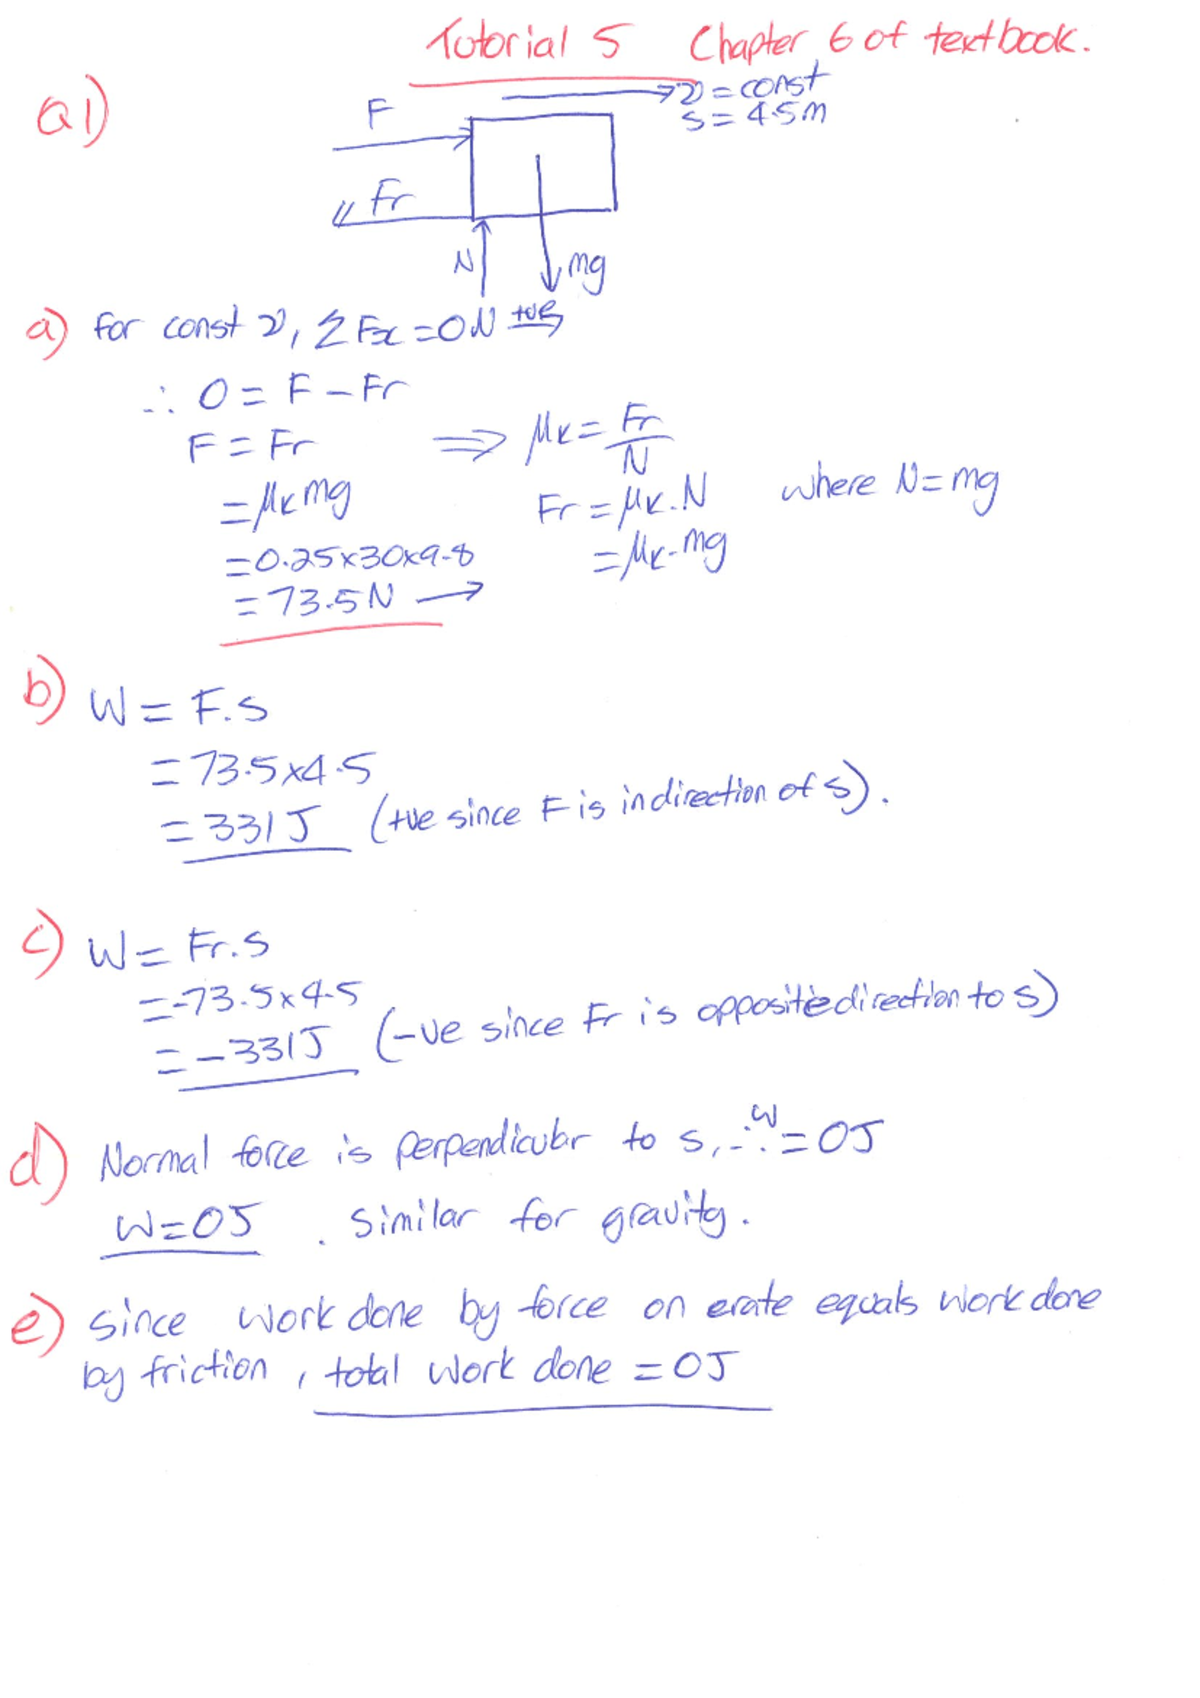 Tutorial 5 Chapter 6 of textbook.
Q1)
v = const
s = 4.5m
F
Fr
N
mg
a) for const v, ΣFx = 0N +ve
∴ 0 = F - Fr
F = Fr ⇒ μk = Fr/N
= μk mg
Fr = μk.N where N = mg
= 0.25x30x9.8
= μk.mg
= 73.5N →
b) W = F.s
= 73.5x4.5
= 331J (+ve since F is in direction of s).
c) W = Fr.s
= -73.5x4.5
= -331J (-ve since Fr is opposite direction to s)
d) Normal force is perpendicular to s, ∴ W = 0J
W = 0J . Similar for gravity.
e) since work done by force on crate equals work done
by friction, total work done = 0J